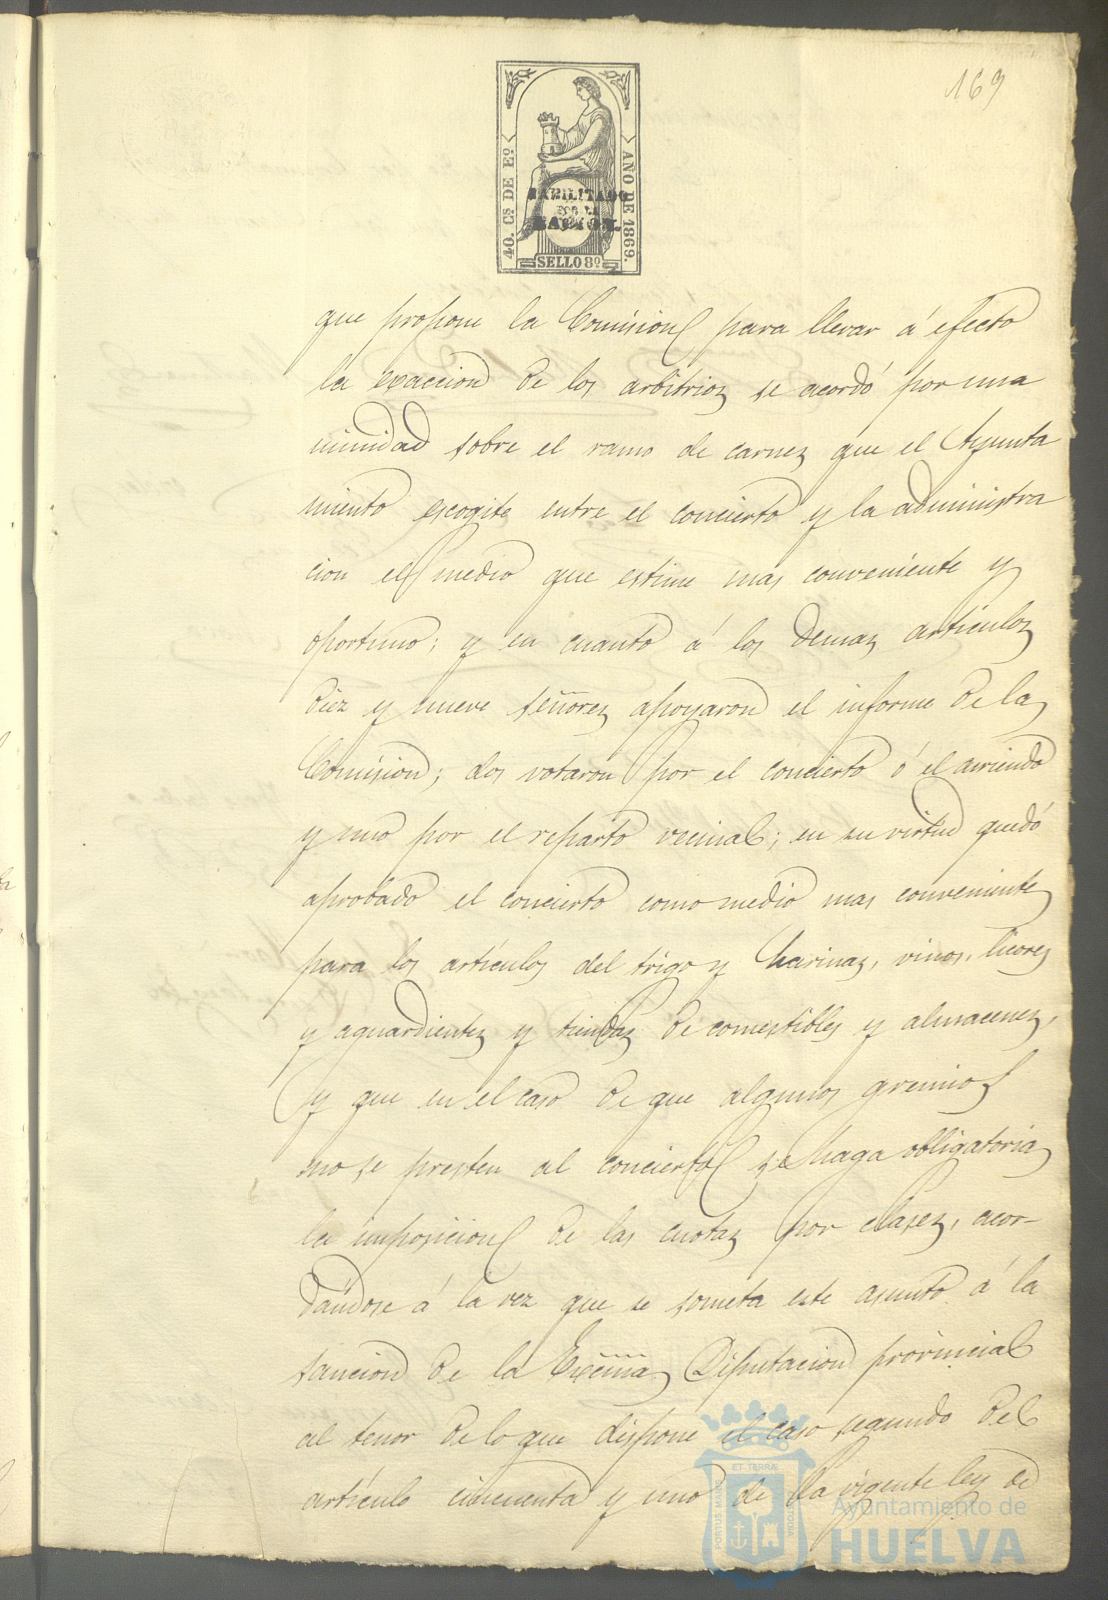 169
40. Cs DE Eo.
AÑO DE 1869.
HABILITADO
POR LA
NACION.
SELLO 8º
que propone la Comision para llevar á efecto
la exaccion de los arbitrios se acordó por una
nimidad sobre el ramo de carnes que el Ayunta
miento escogite entre el concierto y la administra
cion el medio que estime mas conveniente y
oportuno; y en cuanto á los demas artículos
diez y nueve señores apoyaron el informe de la
Comision; dos votaron por el concierto ó el arriendo
y uno por el reparto vecinal; en su virtud quedó
aprobado el concierto como medio mas conveniente
para los artículos del trigo y harinas, vinos, licores
y aguardientes y tiendas de comestibles y almacenes,
y que en el caso de que algunos gremios
no se presten al concierto se haga obligatoria
la imposicion de las cuotas por clases, acor-
dándose á la vez que se someta este asunto á la
sancion de la Excma Diputacion provincial
al tenor de lo que dispone el caso segundo del
artículo cincuenta y uno de la vigente ley de
PORTUS MARIS ET TERRÆ CUSTODIA
Ayuntamiento de
HUELVA